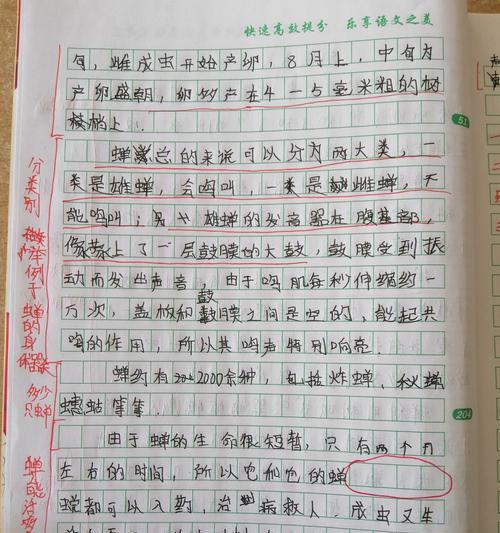 快速高效提分 乐享语文之美
旬，雌成虫开始产卵，8月上，中旬为
产卵盛朝，卵多产在4一5毫米粗的树
枝梢上．
51
蝉总的来说可以分为两大类，一
类是雄蝉，会鸣叫，一类是雌蝉，不
能鸣叫；另外雄蝉的发音器在腹基部，
像蒙上了一层鼓膜的大鼓，鼓膜受到振
动而发出声音，由于鸣肌每秒伸缩约一
鼓
万次，盖板和鼓膜之间是空的，能起共
鸣的作用，所以其鸣声特别响亮．
蝉约有2000余种，包括炸蝉、秋蝉
蟪蛄等等．
204
由于蝉的生命很短暂，只有两个月
左右的时间，所以它和它的蝉
蜕都可以入药，治病救人．成虫又生
分类别
举例子
蝉的身
多少
只蝉
蝉能活